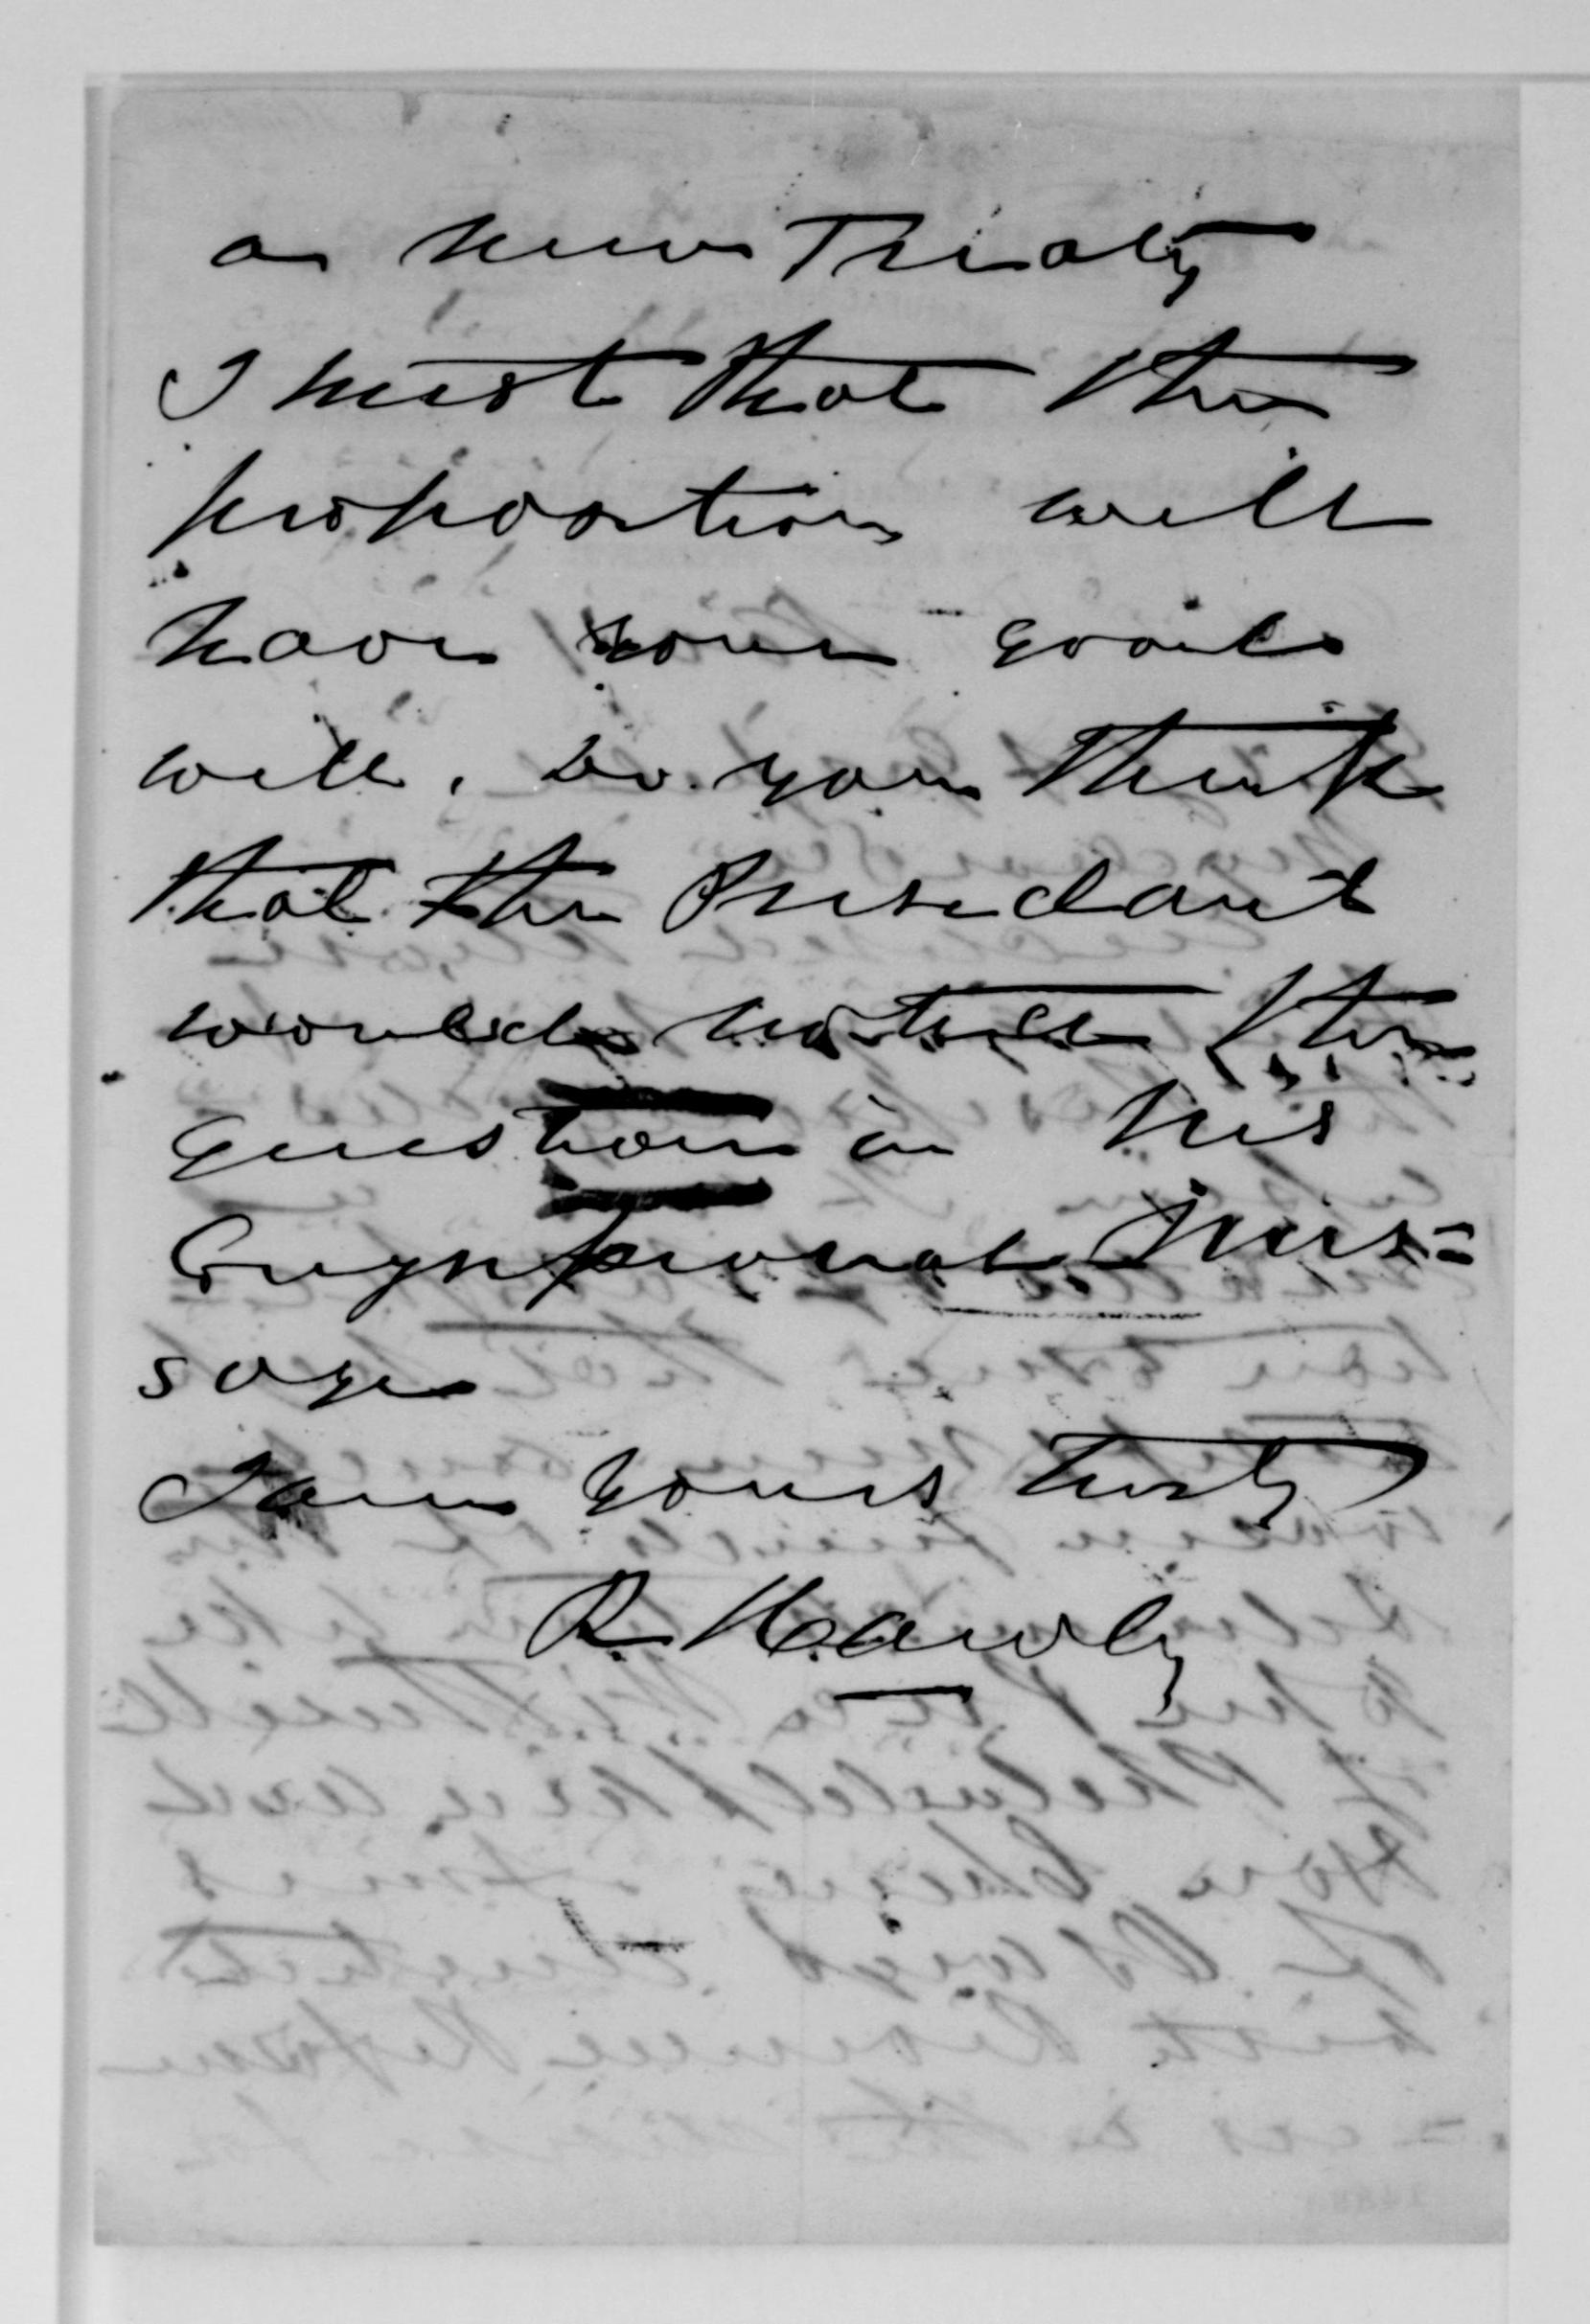 a new Treaty
I trust that the
proposition will
have your good
will. Do you think
that the President
would notice the
question in his
Congressional Mes=
sage
I am yours truly
R Hawly